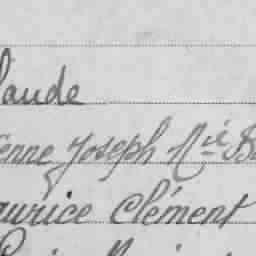 aude
enne Joseph Mié
aurice Clément